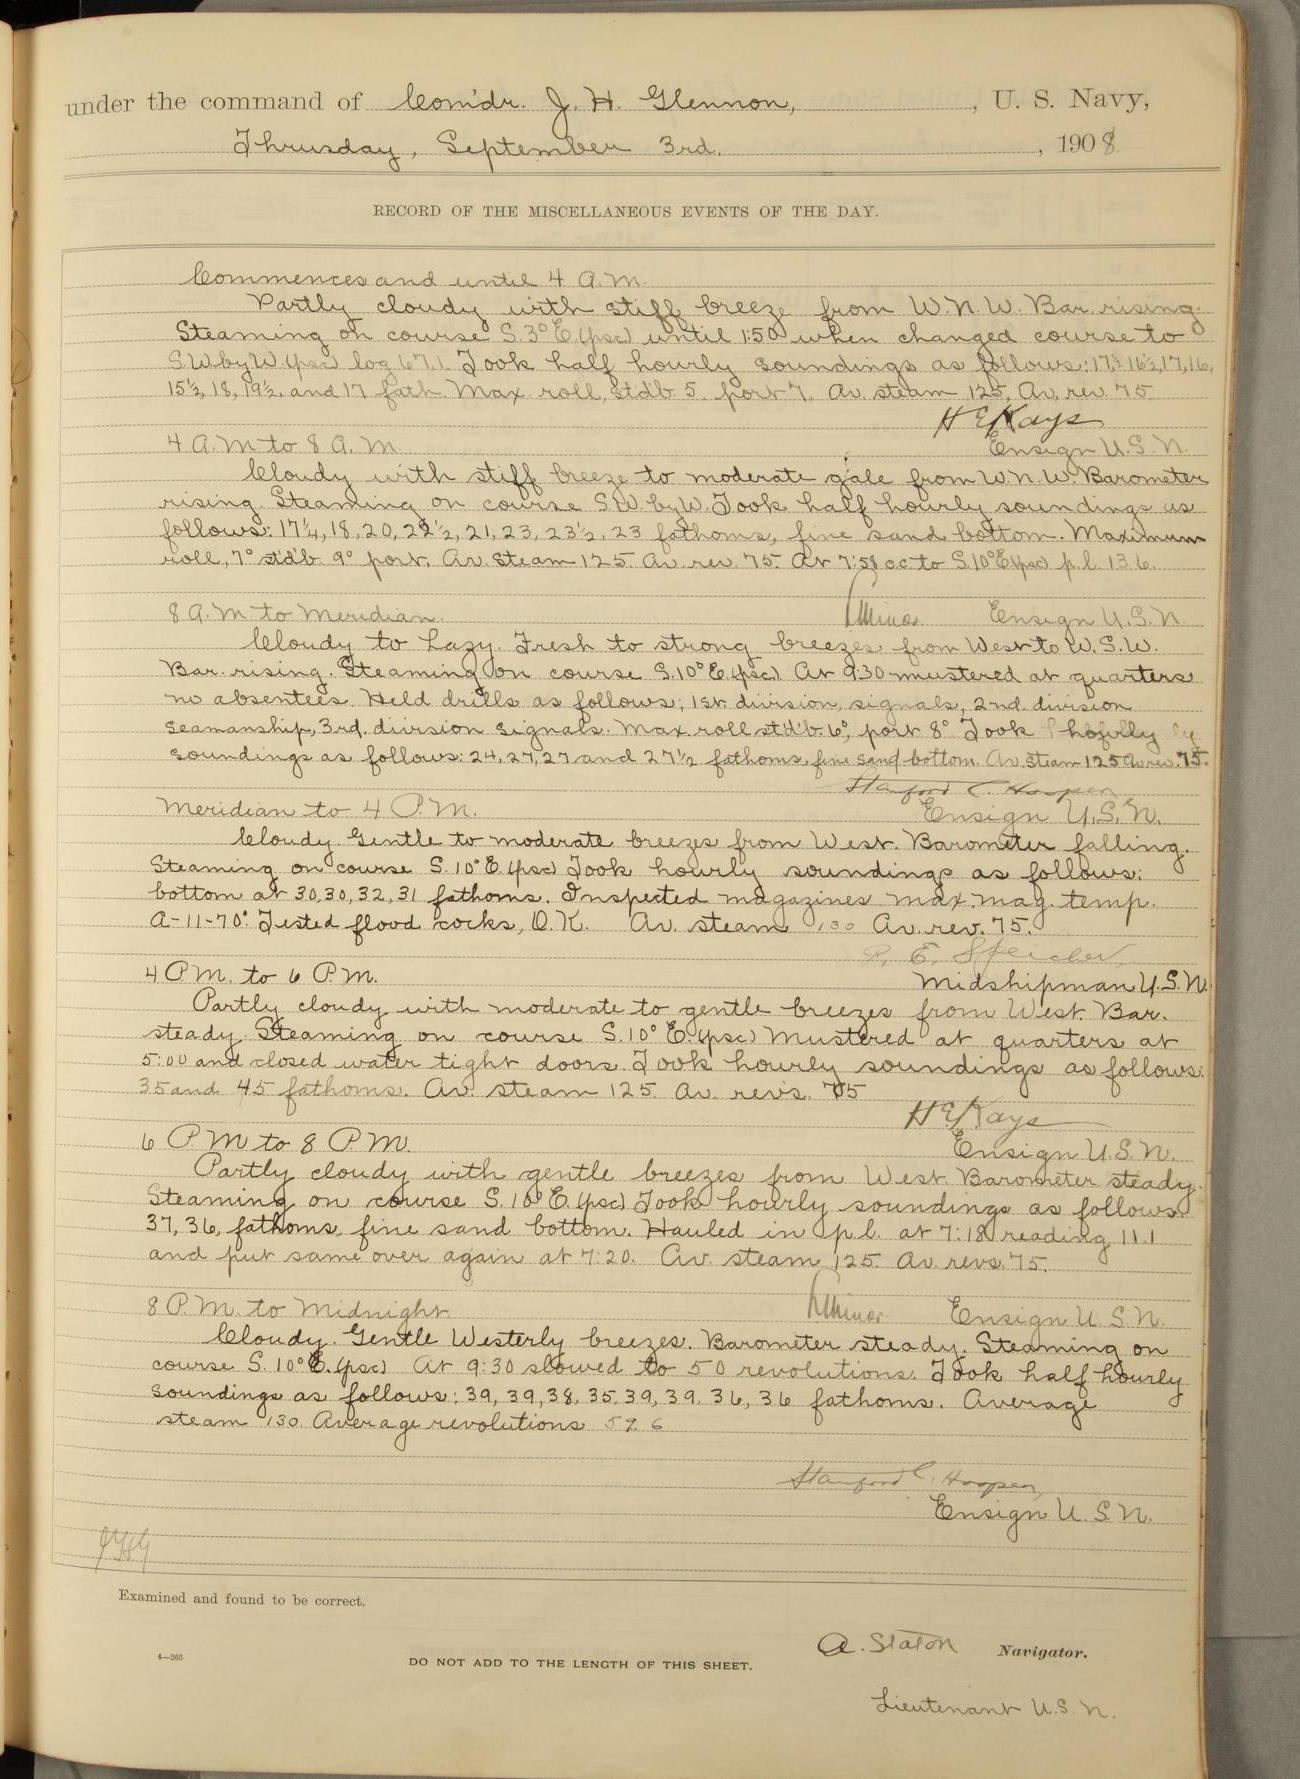 under the command of Com'dr. J. H. Glennon, , U. S. Navy,
Thrusday, September 3rd. , 1908
RECORD OF THE MISCELLANEOUS EVENTS OF THE DAY.
Commences and until 4 A.M.
Partly cloudy with stiff breeze from W.N.W. Bar. rising.
Steaming on course S.3°E.(psc) until 1:50 when changed course to
S.W.by W.(psc) log 67.1. Took half hourly soundings as follows: 17½, 16½, 17, 16,
15½, 18, 19½, and 17 fath. Max. roll, Stdb. 5. port 7. Av. steam 125. Av. rev. 75.
H E Kays
4 A.M. to 8 A.M. Ensign U.S.N.
Cloudy with stiff breeze to moderate gale from W.N.W. Barometer
rising. Steaming on course S.W. by W. Took half hourly soundings as
follows: 17¼, 18, 20, 22½, 21, 23, 23½, 23 fathoms, fine sand bottom. Maximum
roll, 7° std'b. 9° port. Av. Steam 125. Av. rev. 75. At 7:58 c.c. to S.10°E(psc) p.l. 13.6.
8 A.M. to Meridian. Ensign U.S.N.
Cloudy to hazy. Fresh to strong breezes from West to W.S.W.
Bar. rising. Steaming on course S.10°E.(psc) At 9:30 mustered at quarters
no absentees. Held drills as follows; 1st. division, signals, 2nd. division
seamanship, 3rd. division signals. Max. roll std'b. 6°, port 8°. Took hourly
soundings as follows: 24, 27, 27 and 27½ fathoms, fine sand bottom. Av. steam 125 Av. rev. 75.
Stanford C. Hooper
Meridian to 4 P.M. Ensign U.S.N.
Cloudy. Gentle to moderate breezes from West. Barometer falling.
Steaming on course S.10°E.(psc) Took hourly soundings as follows:
bottom at 30, 30, 32, 31 fathoms. Inspected magazines max. mag. temp.
A-11-70°. Tested flood cocks, O.K. Av. steam 130 Av. rev. 75.
R. E. Speicher,
4 P.M. to 6 P.M. Midshipman U.S.N.
Partly cloudy with moderate to gentle breezes from West. Bar.
steady. Steaming on course S.10° E.(psc) Mustered at quarters at
5:00 and closed water tight doors. Took hourly soundings as follows:
35 and 45 fathoms. Av. steam 125. Av. revs. 75
H E Kays
6 P.M. to 8 P.M. Ensign U.S.N.
Partly cloudy with gentle breezes from West. Barometer steady.
Steaming on course S.10°E.(psc) Took hourly soundings as follows:
37, 36, fathoms, fine sand bottom. Hauled in p.l. at 7:18 reading 11.1
and put same over again at 7:20. Av. steam 125. Av. revs. 75.
8 P.M. to Midnight Ensign U.S.N.
Cloudy. Gentle Westerly breezes. Barometer steady. Steaming on
course S.10°E.(psc) At 9:30 slowed to 50 revolutions. Took half hourly
soundings as follows: 39, 39, 38, 35, 39, 39, 36, 36 fathoms. Average
steam 130 Average revolutions 59.6
Stanford C. Hooper,
Ensign U.S.N.
JHG
Examined and found to be correct.
A. Staton Navigator.
4—265
DO NOT ADD TO THE LENGTH OF THIS SHEET.
Lieutenant U.S.N.